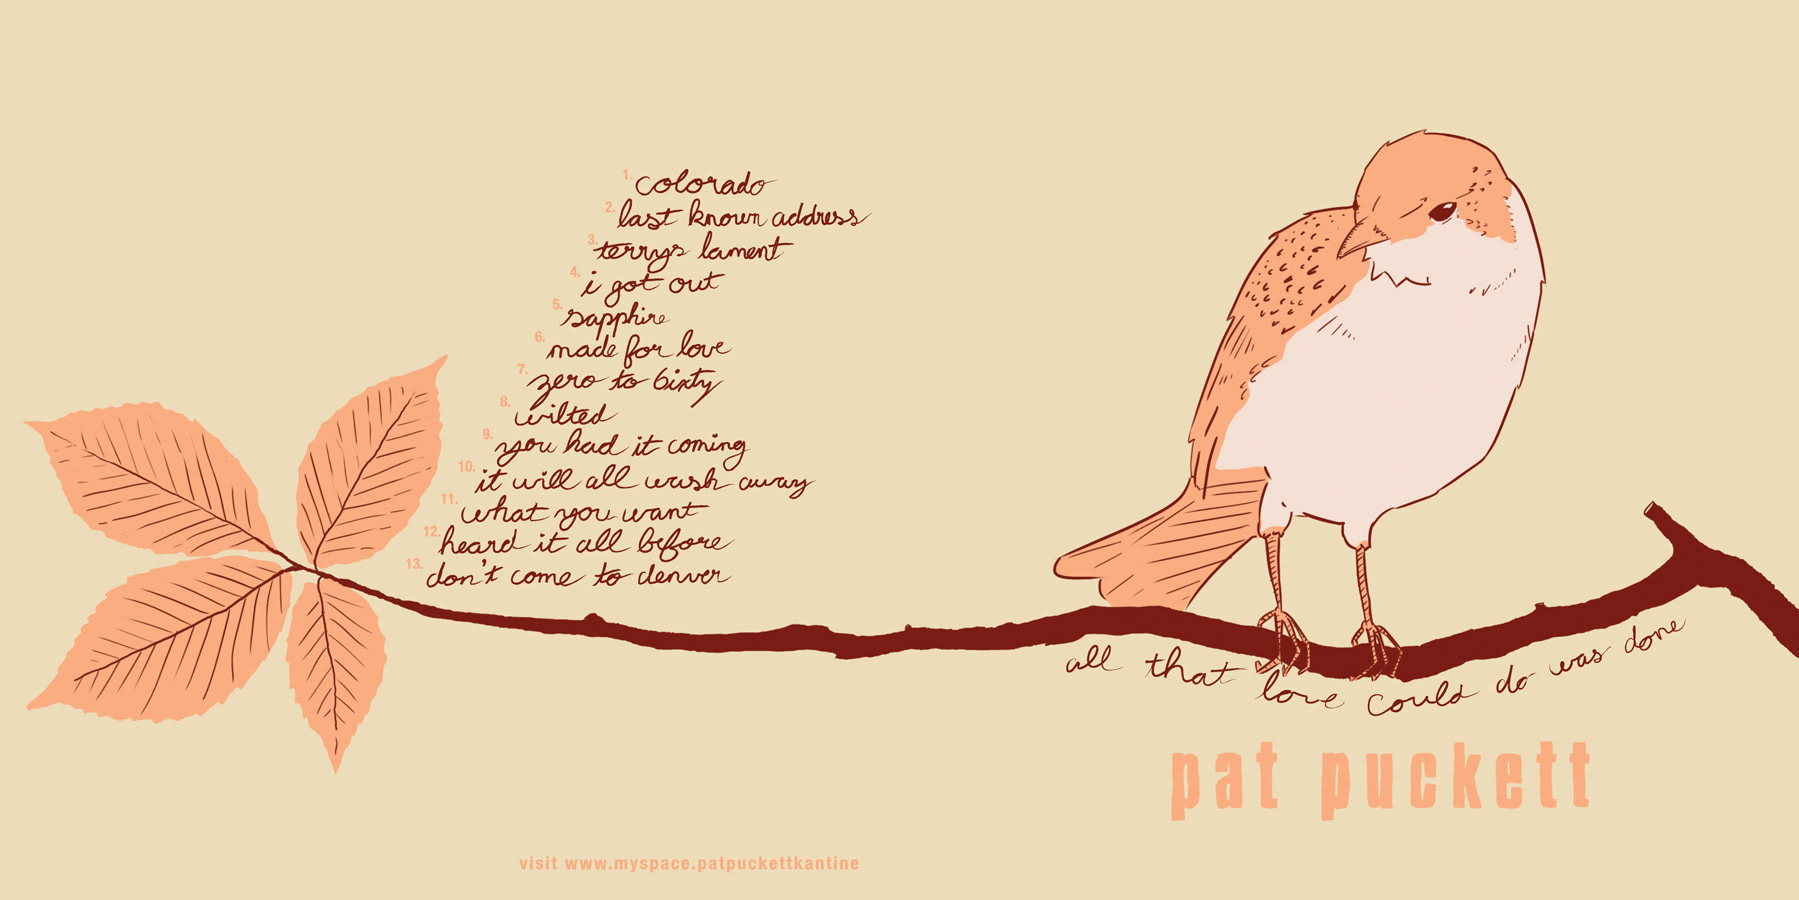 1. colorado
2. last known address
3. terrys lament
4. i got out
5. sapphire
6. made for love
7. zero to 6ixty
8. wilted
9. you had it coming
10. it will all wash away
11. what you want
12. heard it all before
13. don't come to denver
visit www.myspace.patpuckettkantine
all that love could do was done
pat puckett